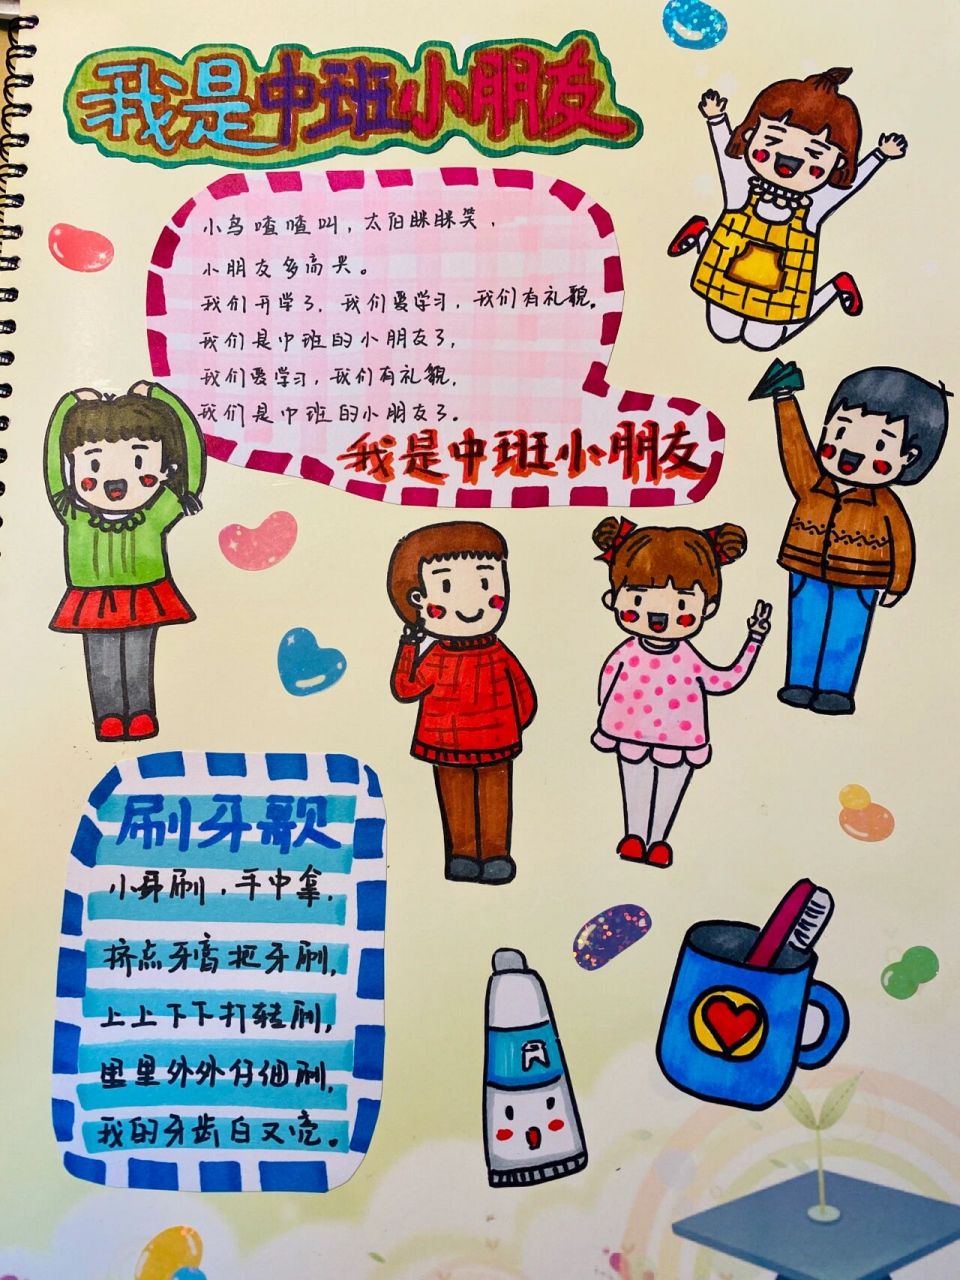 我是中班小朋友
小鸟喳喳叫，太阳眯眯笑，
小朋友多高兴。
我们开学了，我们爱学习，我们有礼貌。
我们是中班的小朋友了，
我们爱学习，我们有礼貌，
我们是中班的小朋友了。
我是中班小朋友
刷牙歌
小牙刷，手中拿，
挤点牙膏把牙刷，
上上下下打转刷，
里里外外仔细刷，
我的牙齿白又亮。